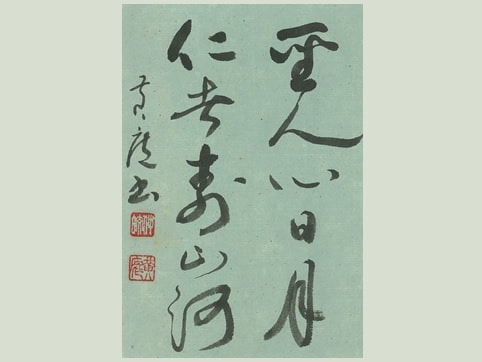 聖人心日月
仁者壽山河
書